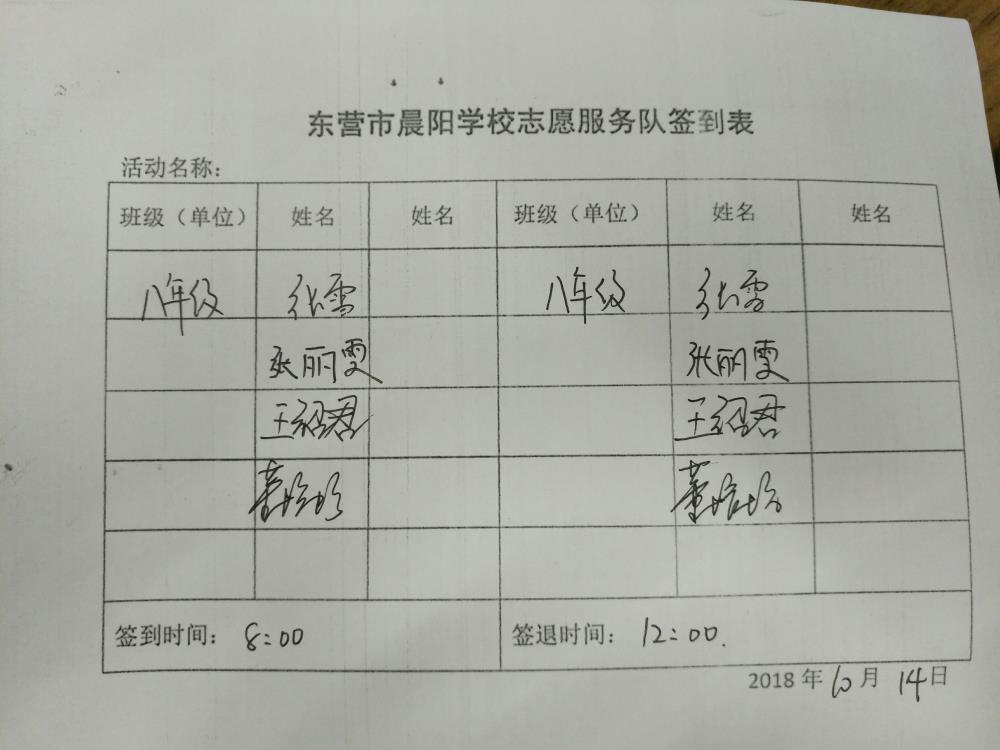 东营市晨阳学校志愿服务队签到表
活动名称：
班级（单位） 姓名 姓名 班级（单位） 姓名 姓名
八年级 张雪 八年级 张雪
张丽雯 张丽雯
王绍君 王绍君
董 董
签到时间： 8:00 签退时间： 12:00.
2018年10月14日